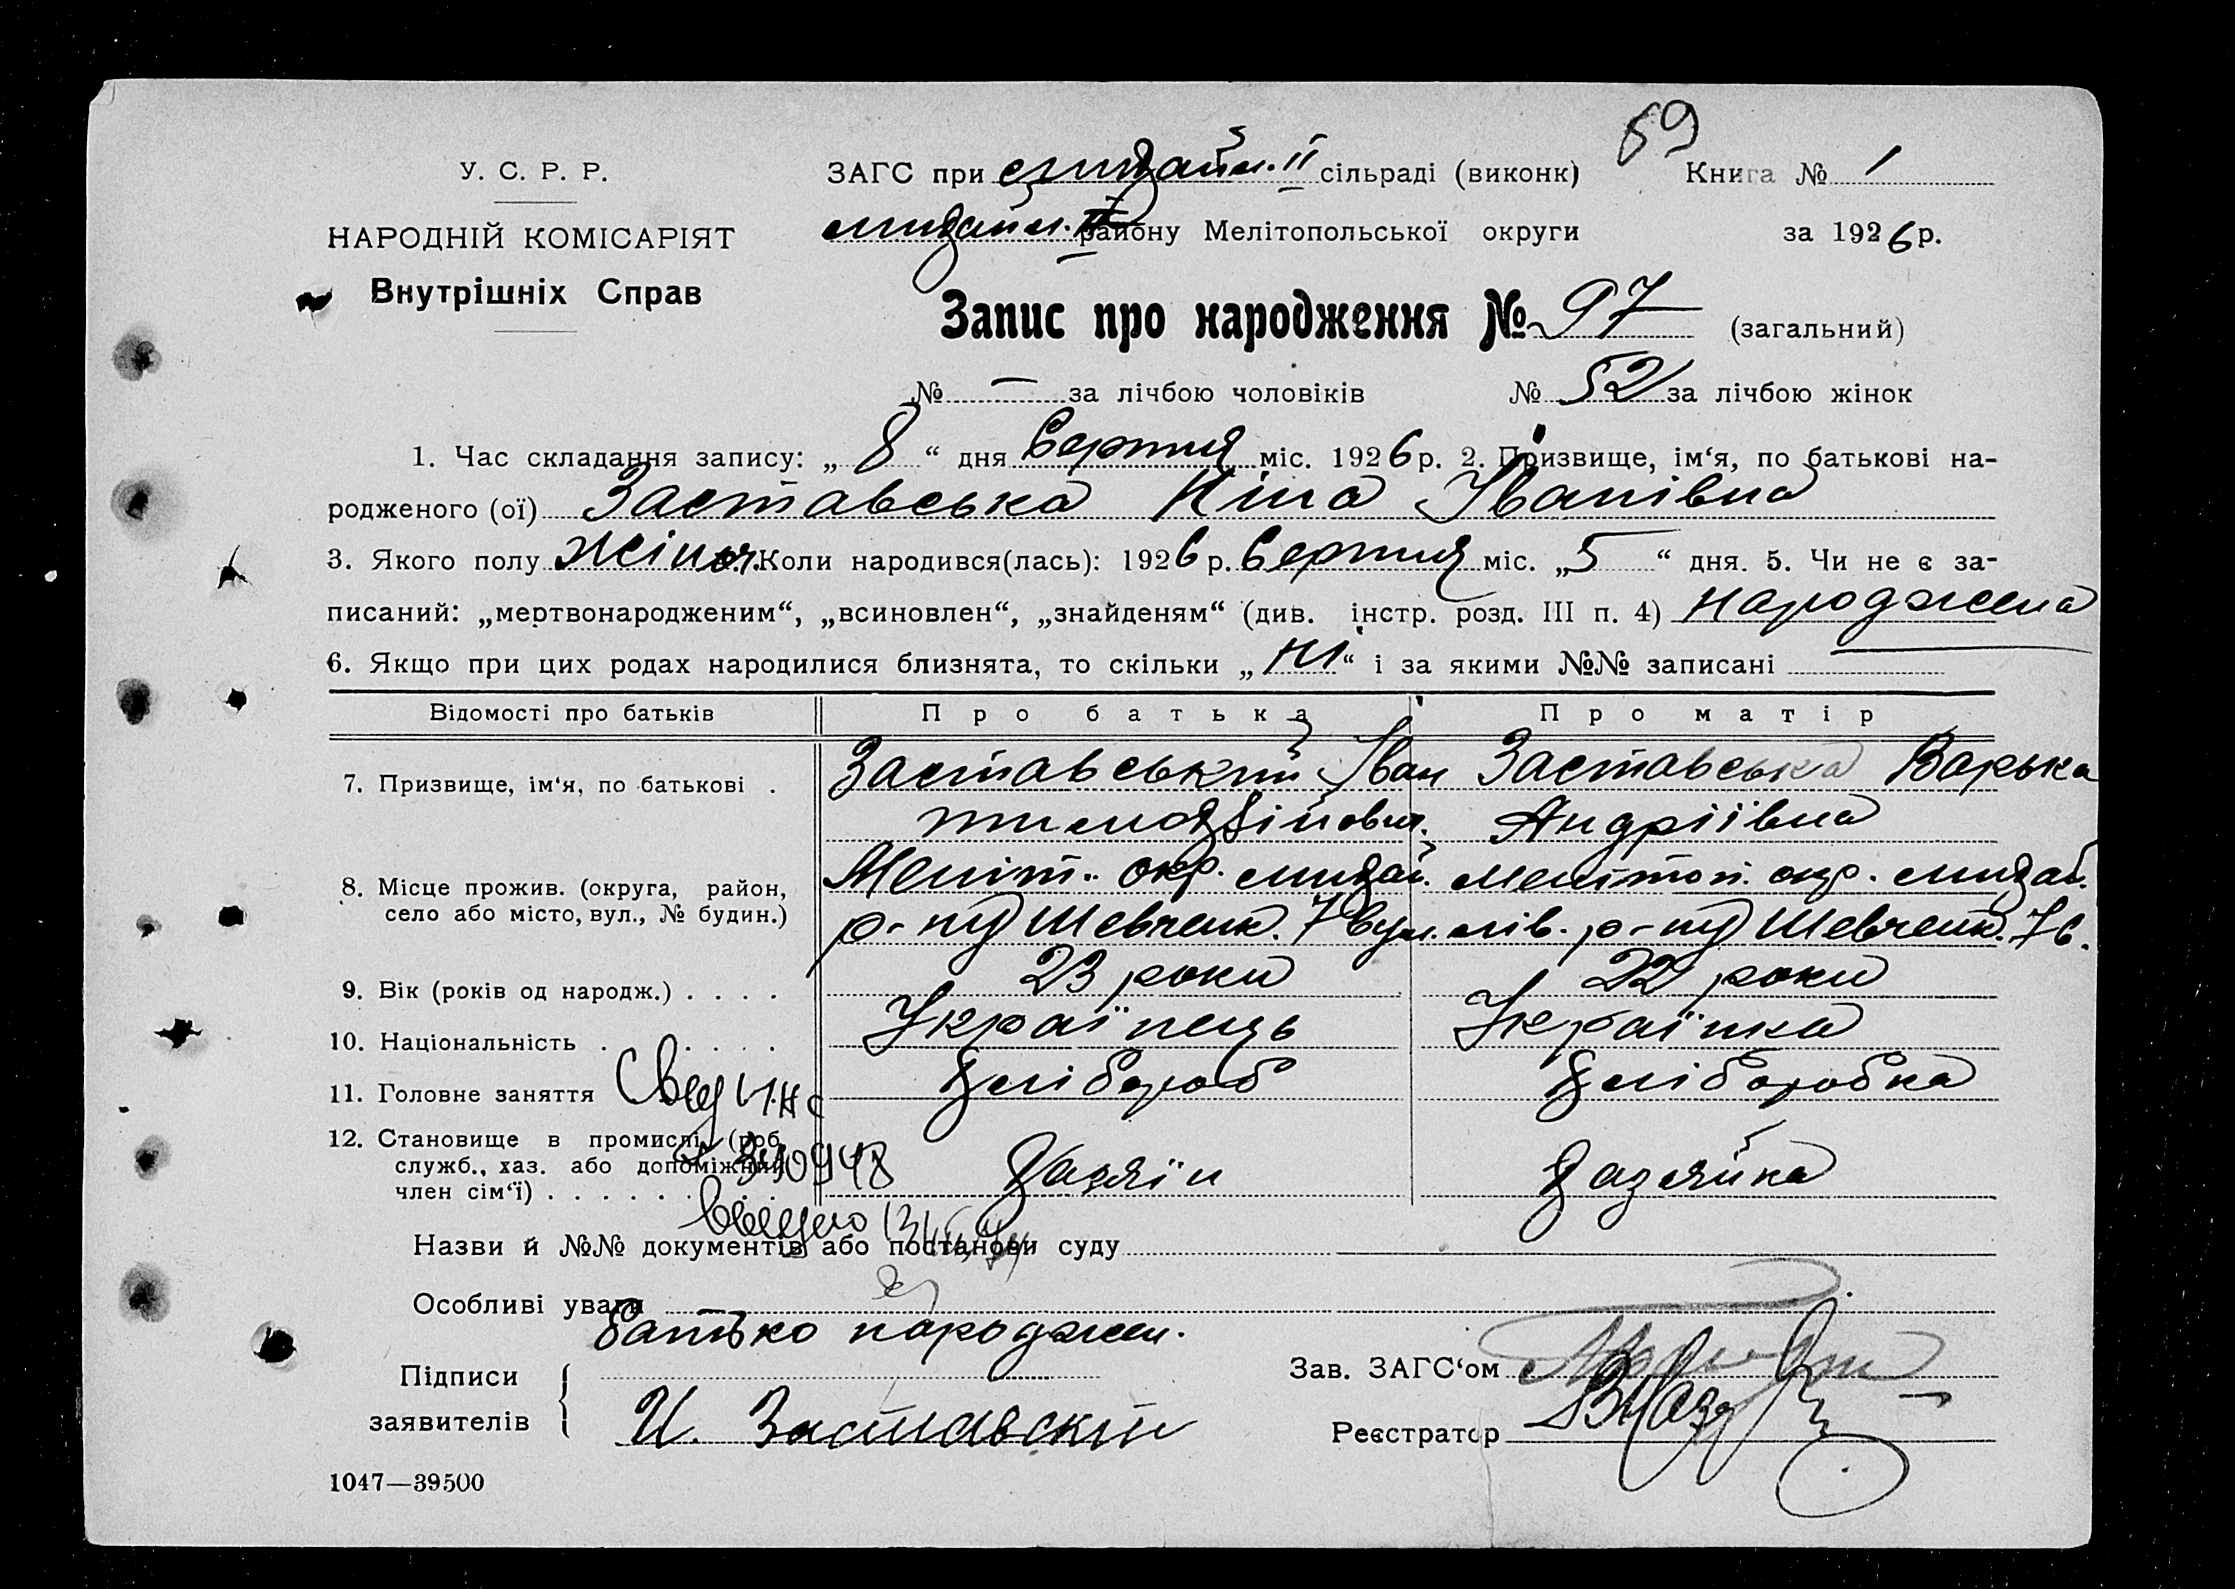 59
У. С. Р. Р.
ЗАГС при михайл. II сільраді (виконк) Книга № 1
НАРОДНІЙ КОМІСАРІЯТ
михайл. району Мелітопольської округи за 1926 р.
Внутрішніх Справ
Запис про народження № 97 (загальний)
№ — за лічбою чоловіків № 52 за лічбою жінок
1. Час складання запису: „ 8 “ дня Серпня міс. 1926 р. 2. Призвище, ім‘я, по батькові на-
родженого (ої) Заставська Ніна Іванівна
3. Якого полу жіноч. Коли народився(лась): 1926 р. Серпня міс. „ 5 “ дня. 5. Чи не є за-
писаний: „мертвонародженим“, „всиновлен“, „знайденям“ (див. інстр. розд. III п. 4) народжена
6. Якщо при цих родах народилися близнята, то скільки „ ні “ і за якими №№ записані
Відомості про батьків Про батька Про матір
7. Призвище, ім‘я, по батькові . Заставський Іван Заставська Варька
тимохвійович. Андріївна
8. Місце прожив. (округа, район, Меліт. окр. михай. мелітоп. окр. михай.
село або місто, вул., № будин.) р-ну Шевченк. 7 вул. лів. р-ну Шевченк. 7 в.
9. Вік (років од народж.) . . . . 23 роки 22 роки
10. Національність . . . . . Українець Українка
11. Головне заняття Хлібороб Хліборобка
12. Становище в промислі (роб.
служб., хаз. або допоміжний Хазяїн Хазяйка
член сім‘ї) . . . . . . . .
Назви й №№ документів або постанови суду
Особливі уваги
батько народжен.
Підписи
заявителів
И. Заставский
Зав. ЗАГС‘ом
Реєстратор
1047—39500